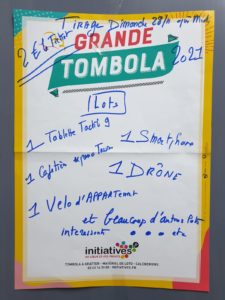 Tirage Dimanche 28/11 après Midi
2€ le Ticket
GRANDE
TOMBOLA 2021
Lots
1 Tablette Tactil 9
1 Smartphone
1 Cafetière
1 DRÔNE
1 Vélo d'APPARTEMENT
et beaucoup d'autres lots
intéressant ... etc
initiatives
TOMBOLA À GRATTER - MATÉRIEL DE LOTO - CALENDRIERS